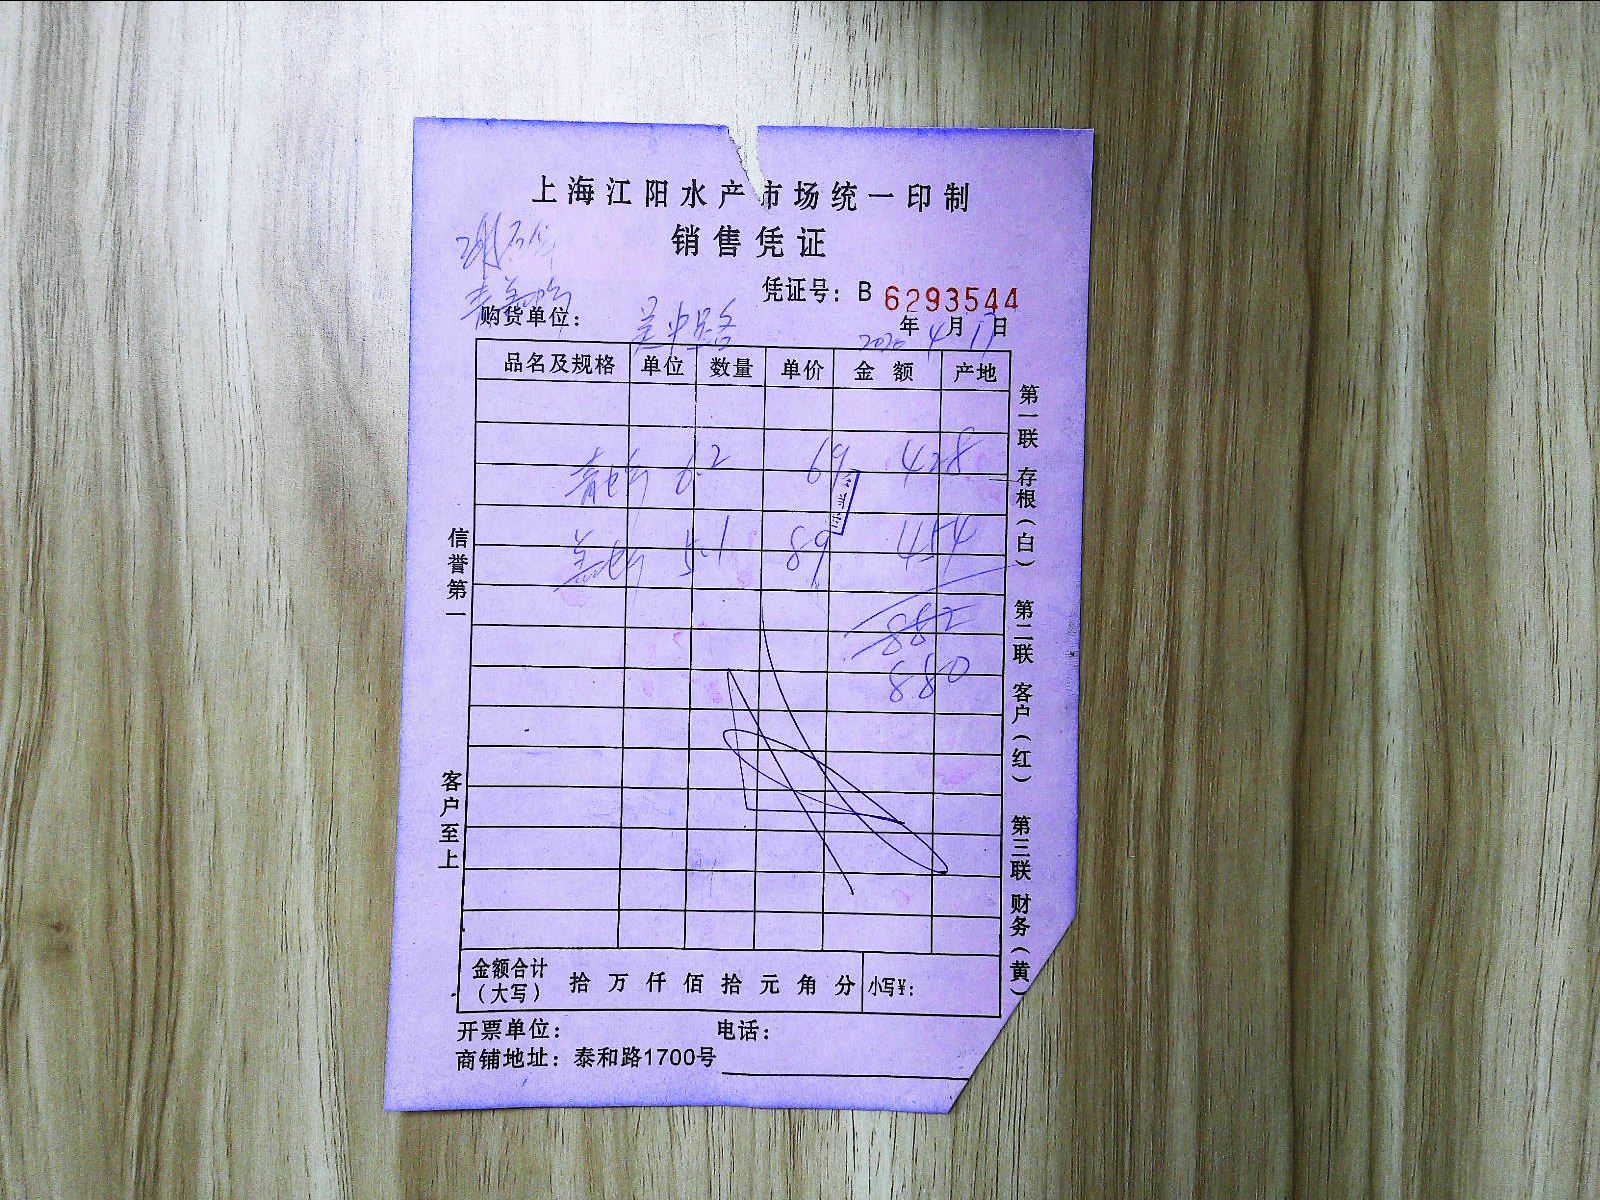 上海江阳水产市场统一印制
销售凭证
凭证号：B 6293544
购货单位： 吴中路
2020年4月17日
品名及规格 单位 数量 单价 金额 产地
6.2 69 428
5.1 89 454
882
880
金额合计（大写） 拾万仟佰拾元角分 小写¥：
开票单位： 电话：
商铺地址：泰和路1700号
信誉第一 客户至上
第一联 存根（白） 第二联 客户（红） 第三联 财务（黄）